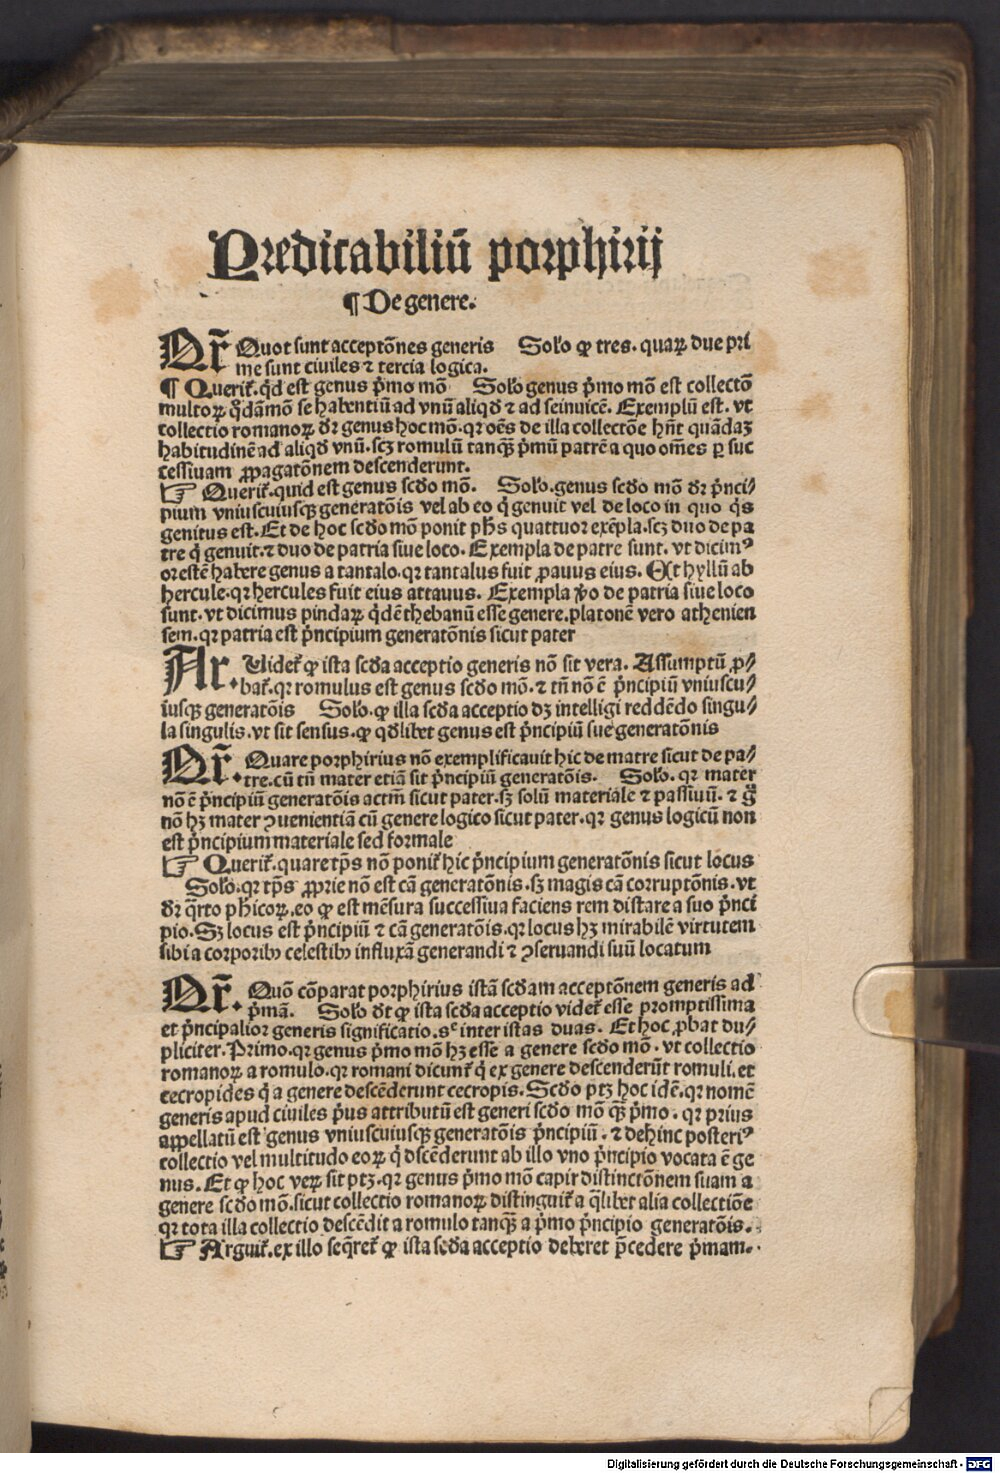 Predicabiliū porphirij
¶ De genere.
Qr̄ Quot sunt acceptōnes generis Solo ꝙ tres. quaꝝ due pri
me sunt ciuiles ⁊ tercia logica.
¶ Querit᷑. qd̄ est genus p̄mo mō Solo genus p̄mo mō est collectō
multoꝝ qd̄āmō se habentiū ad vnū aliqd̄ ⁊ ad seinuicē. Exemplū est. vt
collectio romanoꝝ dr̄ genus hoc mō. qꝛ oēs de illa collectōe hn̄t quādaꝫ
habitudinē ad aliqd̄ vnū. scꝫ romulū tanqꝫ p̄mū patrē a quo om̄es ꝑ suc
cessiuam ꝓpagatōnem descenderunt.
☞ Querit᷑. quid est genus scd̄o mō. Solo. genus scd̄o mō dr̄ p̄nci⸗
pium vniuscuiusqꝫ generatōnis vel ab eo q̇ genuit vel de loco in quo q̇s
genitus est. Et de hoc scd̄o mō ponit ph̄s quattuor exēpla. scꝫ duo de pa
tre q̇ genuit. ⁊ duo de patria siue loco. Exempla de patre sunt. vt dicimꝰ
orestē habere genus a tantalo. qꝛ tantalus fuit ꝓauus eius. Et hyllū ab
hercule. qꝛ hercules fuit eius attauus. Exempla v̄o de patria siue loco
sunt. vt dicimus pindaꝝ qd̄ē thebanū esse genere. platonē vero athenien
sem. qꝛ patria est p̄ncipium generatōnis sicut pater
Ar. Videt᷑ ꝙ ista scd̄a acceptio generis nō sit vera. Assumptū ꝓ⸗
bat᷑. qꝛ romulus est genus scd̄o mō. ⁊ tn̄ nō ē p̄ncipiū vniuscu⸗
iusqꝫ generatōis Solo. ꝙ illa scd̄a acceptio dꝫ intelligi reddēdo singu⸗
la singulis. vt sit sensus. ꝙ qd̄libet genus est p̄ncipiū sue generatōnis
Qr̄. Quare porphirius nō exemplificauit hic de matre sicut de pa⸗
tre. cū tn̄ mater etiā sit p̄ncipiū generatōis. Solo. qꝛ mater
nō ē p̄ncipiū generatōis actm̄ sicut pater. sꝫ solū materiale ⁊ passiuū. ⁊ g̊
nō hꝫ mater ↄuenientiā cū genere logico sicut pater. qꝛ genus logicū non
est p̄ncipium materiale sed formale
☞ Querit᷑. quare tp̄s nō ponit᷑ hic p̄ncipium generatōnis sicut locus
Solo. qꝛ tp̄s ꝓprie nō est cā generatōnis. sꝫ magis cā corruptōnis. vt
dr̄ q̄rto phicoꝝ. eo ꝙ est mēsura successiua faciens rem distare a suo p̄nci
pio. Sꝫ locus est p̄ncipiū ⁊ cā generatōis. qꝛ locus hꝫ mirabilē virtutem
sibi a corporibꝰ celestibꝰ influxā generandi ⁊ ↄseruandi suū locatum
Qr̄. Quō cōparat porphirius istā scd̄am acceptōnem generis ad
p̄mā. Solo dt̄ ꝙ ista scd̄a acceptio videt᷑ esse promptissima
et p̄ncipalior generis significatio. sc̄ inter istas duas. Et hoc ꝓbat du⸗
pliciter. Primo. qꝛ genus p̄mo mō hꝫ esse a genere scd̄o mō. vt collectio
romanoꝝ a romulo. qꝛ romani dicunt᷑ q̇ ex genere descenderūt romuli. et
cecropides q̇ a genere descēderunt cecropis. Scd̄o ptꝫ hoc idē. qꝛ nomē
generis apud ciuiles p̄us attributū est generi scd̄o mō qꝫ̄ p̄mo. qꝛ prius
appellatū est genus vniuscuiusqꝫ generatōis p̄ncipiū. ⁊ dehinc posteriꝰ
collectio vel multitudo eoꝝ q̇ dscēderunt ab illo vno p̄ncipio vocata ē ge
nus. Et ꝙ hoc veꝝ sit ptꝫ. qꝛ genus p̄mo mō capit distinctōnem suam a
genere scd̄o mō. sicut collectio romanoꝝ distinguit᷑ a q̄libet alia collectiōe
qꝛ tota illa collectio descēdit a romulo tanqꝫ a p̄mo p̄ncipio generatōis.
☞ Arguit᷑. ex illo seq̄ret᷑ ꝙ ista scd̄a acceptio deberet p̄cedere p̄mam.
Digitalisierung gefördert durch die Deutsche Forschungsgemeinschaft - DFG